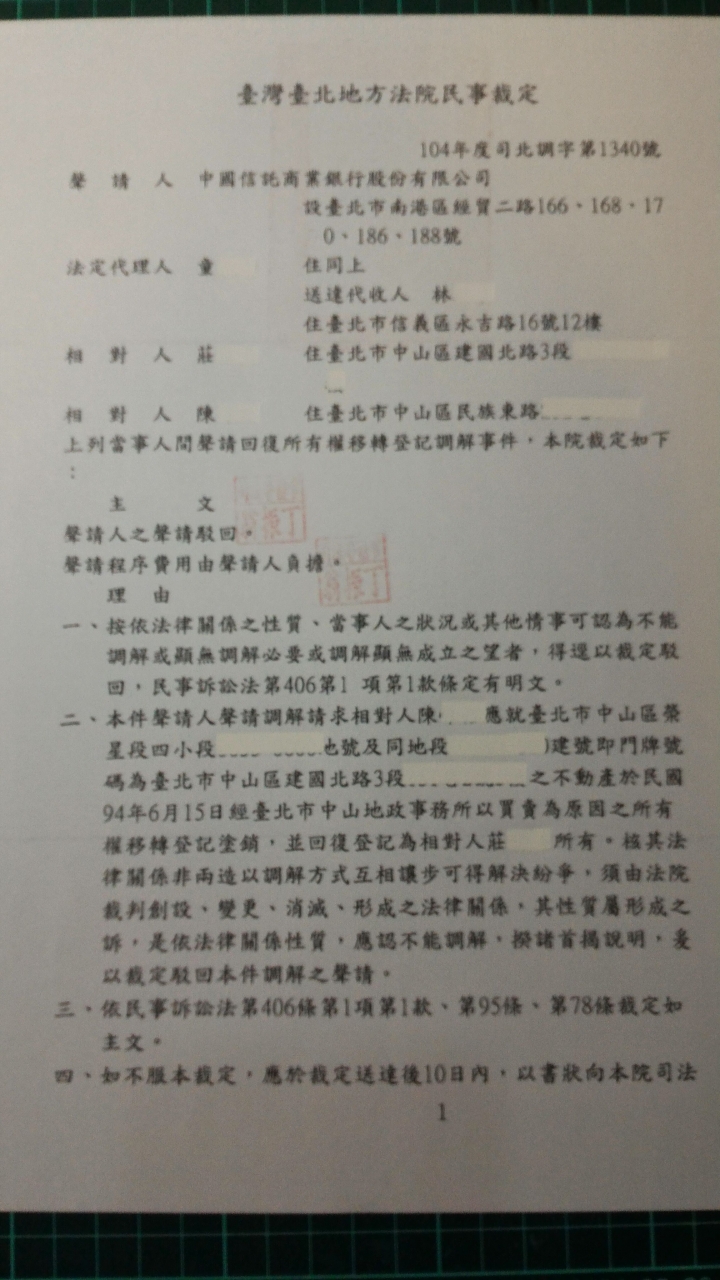 臺灣臺北地方法院民事裁定
104年度司北調字第1340號
聲 請 人 中國信託商業銀行股份有限公司
設臺北市南港區經貿二路166、168、17
0、186、188號
法定代理人 童 住同上
送達代收人 林
住臺北市信義區永吉路16號12樓
相 對 人 莊 住臺北市中山區建國北路3段
相 對 人 陳 住臺北市中山區民族東路
上列當事人間聲請回復所有權移轉登記調解事件,本院裁定如下
:
主 文
聲請人之聲請駁回。
聲請程序費用由聲請人負擔。
理 由
一、按依法律關係之性質、當事人之狀況或其他情事可認為不能
調解或顯無調解必要或調解顯無成立之望者,得逕以裁定駁
回,民事訴訟法第406第1 項第1款條定有明文。
二、本件聲請人聲請調解請求相對人陳 應就臺北市中山區榮
星段四小段 地號及同地段 建號即門牌號
碼為臺北市中山區建國北路3段 之不動產於民國
94年6月15日經臺北市中山地政事務所以買賣為原因之所有
權移轉登記塗銷,並回復登記為相對人莊 所有。核其法
律關係非兩造以調解方式互相讓步可得解決紛爭,須由法院
裁判創設、變更、消滅、形成之法律關係,其性質屬形成之
訴,是依法律關係性質,應認不能調解,揆諸首揭說明,爰
以裁定駁回本件調解之聲請。
三、依民事訴訟法第406條第1項第1款、第95條、第78條裁定如
主文。
四、如不服本裁定,應於裁定送達後10日內,以書狀向本院司法
1